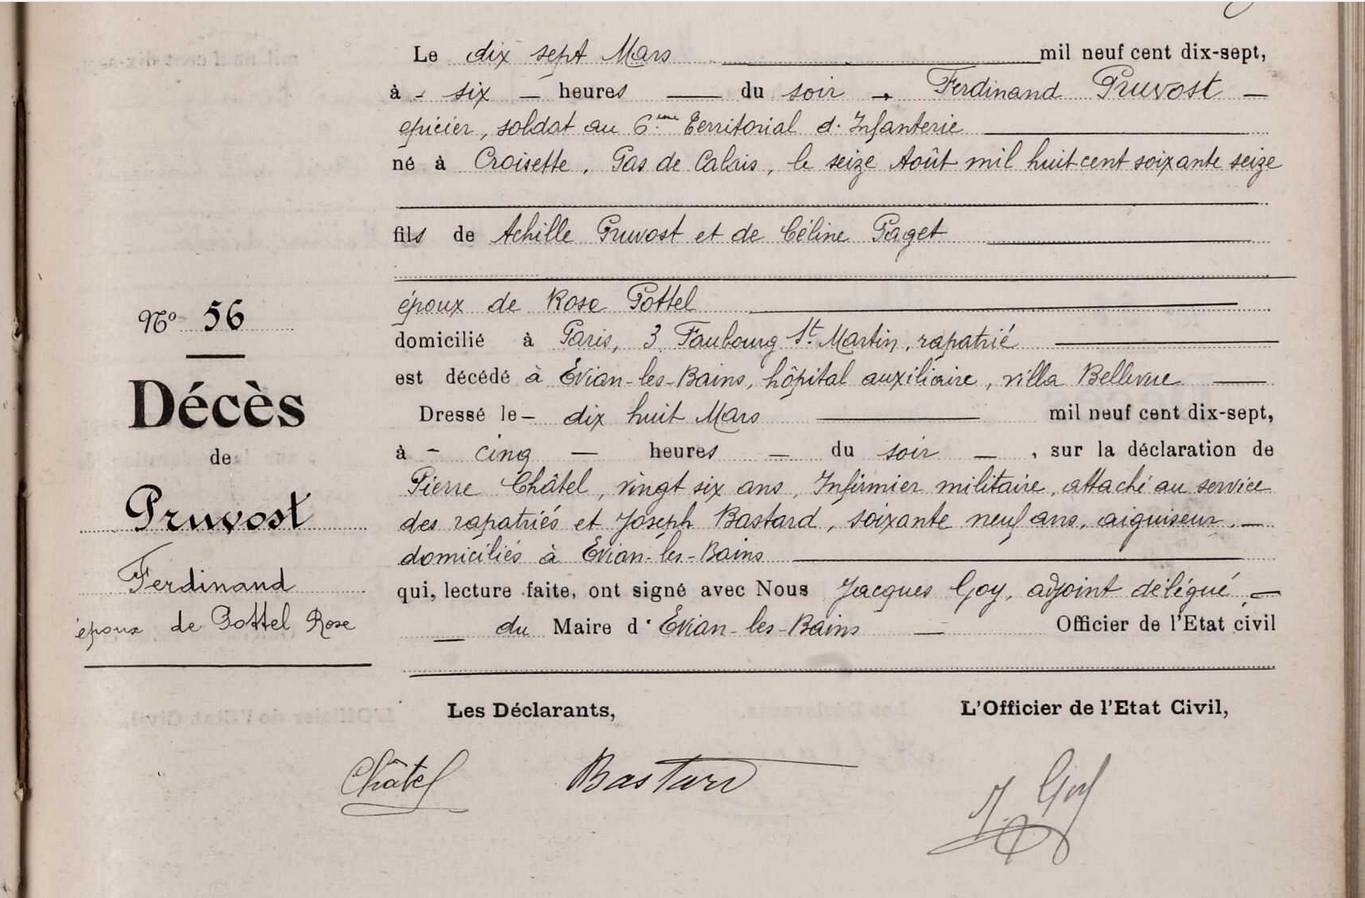 Le dix sept Mars mil neuf cent dix-sept,
à - six - heures du soir, Ferdinand Pruvost -
épicier, soldat au 6eme Territorial d'Infanterie
né à Croisette, Pas de Calais, le seize Août mil huit cent soixante seize
fils de Achille Pruvost et de Céline Paget
époux de Rose Pottel
domicilié à Paris, 3 Faubourg St Martin, rapatrié
est décédé à Évian-les-Bains, hôpital auxiliaire, villa Bellevue
Dressé le - dix huit Mars mil neuf cent dix-sept,
à - cinq - heures - du soir - , sur la déclaration de
Pierre Châtel, vingt six ans, Infirmier militaire, attaché au service
des rapatriés et Joseph Bastard, soixante neuf ans, aiguiseur, -
domiciliés à Evian-les-Bains
qui, lecture faite, ont signé avec Nous Jacques Goy, adjoint délégué, -
- du Maire d'Evian-les-Bains - Officier de l'Etat civil
No 56
Décès
de
Pruvost
Ferdinand
époux de Pottel Rose
Les Déclarants,
L'Officier de l'Etat Civil,
Châtel
Bastard
J. Goy